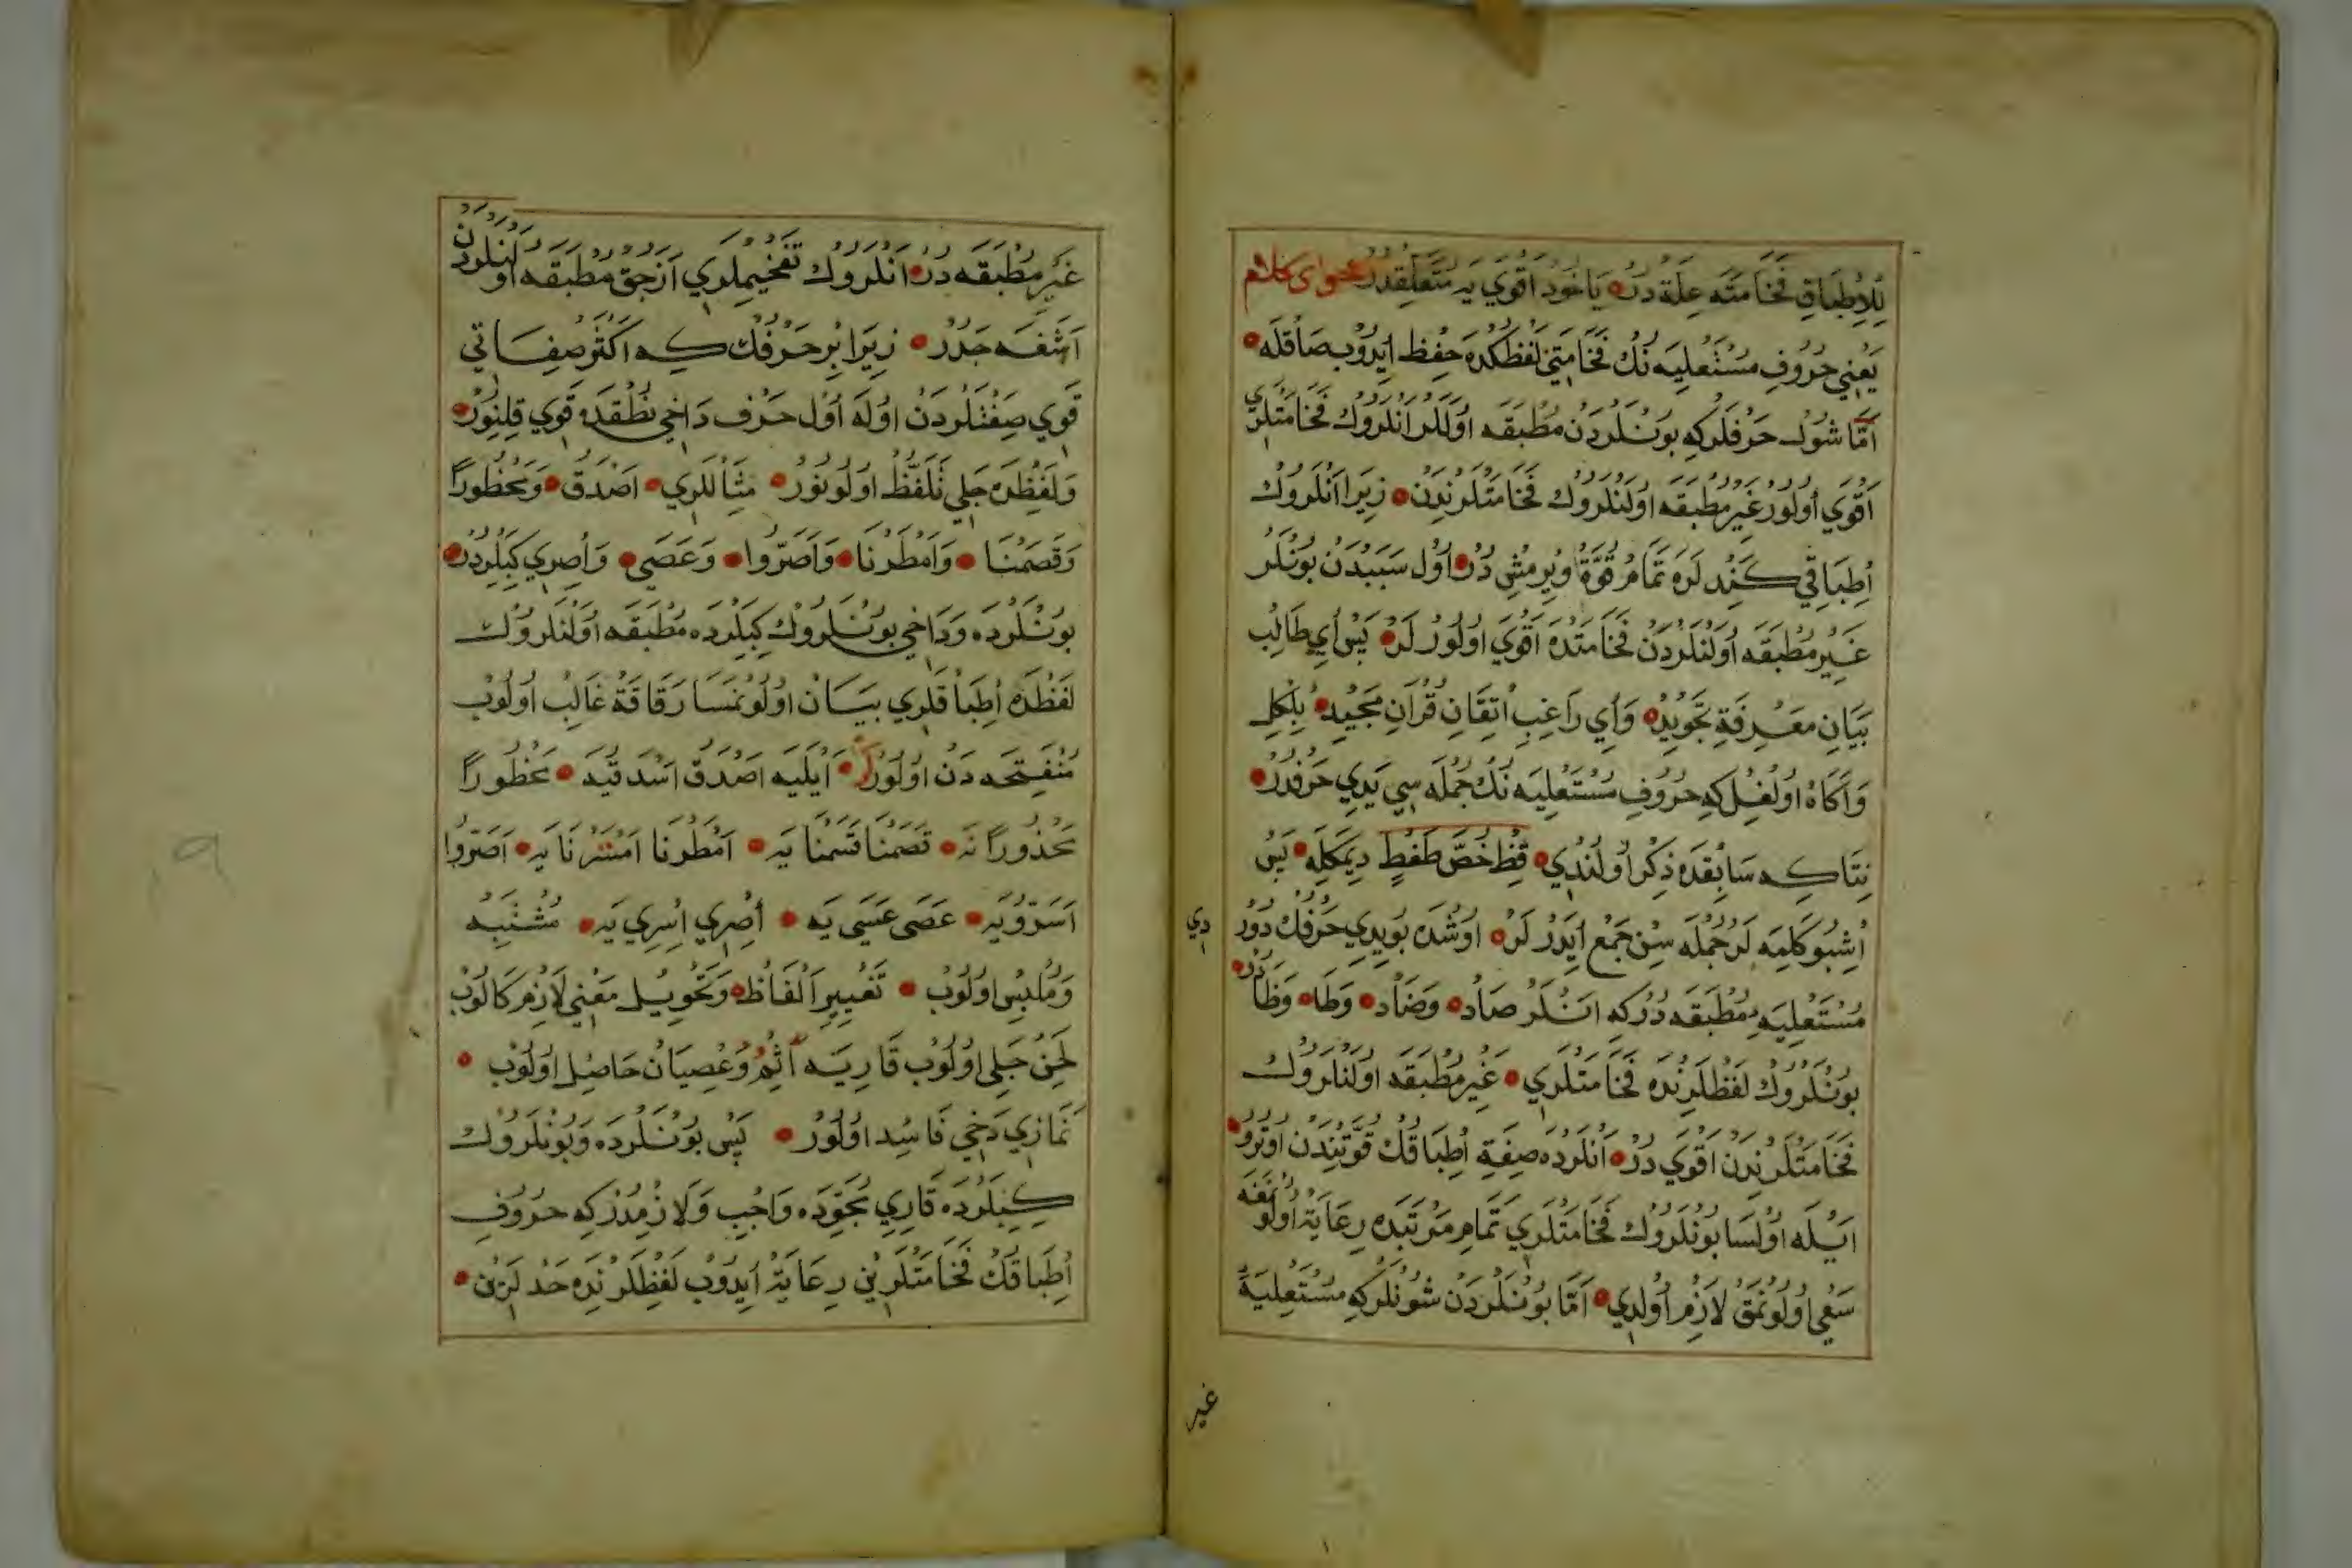 لِلاِطْبَاقِ فَخَامَتَه عِلَّة دُرْ يَاخُودْ اَقْوَي يَه مُتَعَلِّقْدُرْ فحواى كلام
يَعْنِي حُرُوفِ مُسْتَعْلِيَه نُكْ فَخَامَتِنِي لَفْظكْدَه حِفْظ اِيدُوبْ صَاقْلَه
اَمَّا شُولْ حَرْفْلَرْكِه بُونْلَرْدَنْ مُطْبَقَه اُولَلَرْ اَنْلَرُوكْ فَخَامَتْلَرِي
اَقْوَي اُولُورْ غَيْرِ مُطْبَقَه اُولَنْلَرُوكْ فَخَامَتْلَرِنْدَنْ زِيرَا اَنْلَرُوكْ
اِطْبَاقِي كَنْدُلَرَه تَمَامْ قُوَّة وِيرْمِشْ دُرْ اُولْ سَبَبْدَنْ بُونْلَرْ
غَيْرِ مُطْبَقَه اُولَنْلَرْدَنْ فَخَامَتْدَه اَقْوَي اُولُورْلَرْ پَسْ اَيْ طَالِبِ
بَيَانِ مَعْرِفَةِ تَجْوِيدْ وَاَيْ رَاغِبِ اِتْقَانِ قُرْآنِ مَجِيدْ بِلْكِلْ
وَآكَاهْ اُولْغِلْ كِه حُرُوفِ مُسْتَعْلِيَه نُكْ جُمْلَه سِي يَدِي حَرْفْدُرْ
نِتَاكِه سَابِقْدَه ذِكْر اُولُنْدِي قِظْ خُصَّ ضَغْطٍ دِيمَكْلَه پَسْ
اِشْبُو كَلِمَه لَرْ جُمْلَه سِنْ جَمْع اِيدَرْلَرْ اُوشْدَه بُو يِدِي حَرْفُكْ دُورْدِي
مُسْتَعْلِيَه مُطْبَقَه دُرْكِه اَنْلَرْ صَادْ وَضَادْ وَطَا وَظَادُرْ
بُونْلَرُوكْ لَفْظْلَرِنْدَه فَخَامَتْلَرِي غَيْرِ مُطْبَقَه اُولَنْلَرُوكْ
فَخَامَتْلَرِنْدَنْ اَقْوَي دُرْ اَنْلَرْدَه صِفَةِ اِطْبَاقُكْ قُوَّتِنْدَنْ اُوتُرُو
اَيْلَه اُولْسَا بُونْلَرُوكْ فَخَامَتْلَرِي تَمَامْ مَرْتَبَه رِعَايَة اُولُنْمَغَه
سَعْي اُولُونْمَقْ لَازِمْ اُولْدِي اَمَّا بُونْلَرْدَنْ شُونْلَرْكِه مُسْتَعْلِيَةِ
غير
غَيْرِ مُطْبَقَه دُرْ اَنْلَرُوكْ تَفْخِيمْلَرِي اَزْجِقْ مُطْبَقَه اُولَنْلَرْدَنْ
اَشَغَه جَدُرْ زِيرَا بِرْ حَرْفُكْ كِه اَكْثَرْ صِفَاتِي
قَوِي صِفَتْلَرْدَنْ اُولَه اُولْ حَرْف دَاخِي نُطْقْدَه قَوِي قِلِنُورْ
وَلَفْظْدَه جَلِي تَلَفُّظْ اُولُونُورْ مِثَالْلَرِي اَصْدَقُ وَمَحْظُورًا
وَقَصَمْنَا وَاَمْطَرْنَا وَاَصَرُّوا وَعَصَى وَاِصْرِي كِبِلَرْدُرْ
بُونْلَرْدَه وَدَاخِي بُونْلَرُوكْ كِبِلَرْدَه مُطْبَقَه اُولَنْلَرُوكْ
لَفْظْدَه اِطْبَاقْلَرِي بَيَانْ اُولُونْمَسَا رَقَاقَةْ غَالِبْ اُولُوبْ
مُنْفَتِحَه دَنْ اُولُورْلَرْ اَيْلَيَه اَصْدَقُ اَسْدَقُ يَه مَحْظُورًا
مَحْذُورًا نَه قَصَمْنَا قَسَمْنَا يَه اَمْطَرْنَا اَمْتَرْنَا يَه اَصَرُّوا
اَسَرُّو يَه عَصَى عَسَى يَه اِصْرِي اِسْرِي يَه مُشْتَبِه
وَمُلْبِسْ اُولُوبْ تَغْيِيرِ اَلْفَاظْ وَتَحْوِيلِ مَعْنِي لَازِمْ كَالُوبْ
لَحْنِ جَلِي اُولُوبْ قَارِيَه اَثِمْ وَعِصْيَانْ حَاصِلْ اُولُوبْ
نَمَازِي دَخِي فَاسِد اُولُورْ پَسْ بُونْلَرْدَه وَبُونْلَرُوكْ
كِبِلَرْدَه قَارِي مُجَوِّدَه وَاجِبْ وَلَازِمْدُرْكِه حُرُوفِ
اِطْبَاقُكْ فَخَامَتْلَرِيْنِ رِعَايَة اِيدُوبْ لَفْظْلَرِنْدَه حَدْلَرِيْن